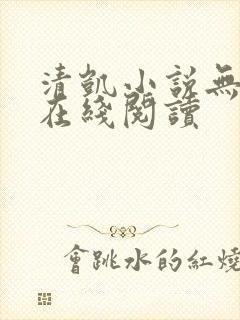 清凱小説無
在綫閱讀
會跳水的紅燒